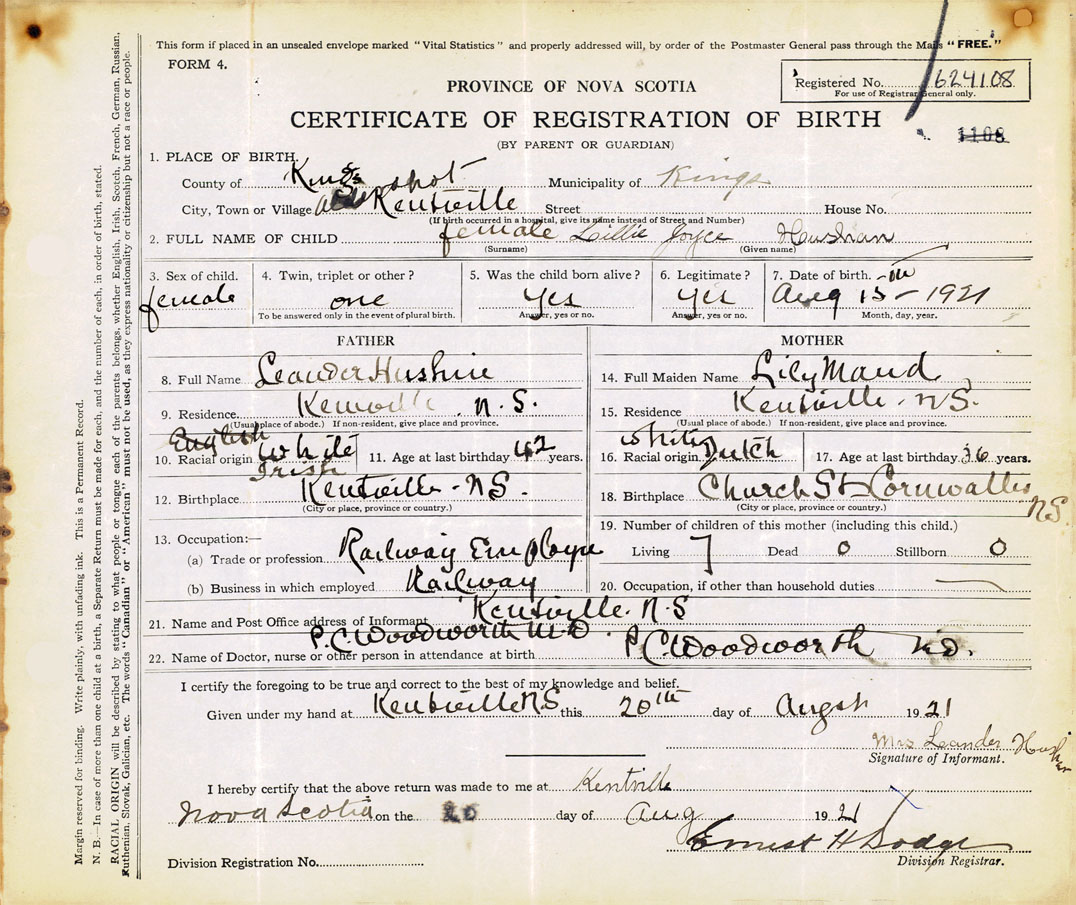 This form if placed in an unsealed envelope marked "Vital Statistics" and properly addressed will, by order of the Postmaster General pass through the Mails "FREE."
FORM 4.
Registered No. 624108
For use of Registrar General only.
PROVINCE OF NOVA SCOTIA
CERTIFICATE OF REGISTRATION OF BIRTH
1108
(BY PARENT OR GUARDIAN)
1. PLACE OF BIRTH.
County of Kings Municipality of Kings
City, Town or Village Kentville Street House No.
(If birth occurred in a hospital, give its name instead of Street and Number)
2. FULL NAME OF CHILD female Lillie Joyce
(Surname) (Given name)
3. Sex of child. 4. Twin, triplet or other? 5. Was the child born alive? 6. Legitimate? 7. Date of birth.
female one Yes Yes Aug 15 - 1921
To be answered only in the event of plural birth. Answer, yes or no. Answer, yes or no. Month, day, year.
FATHER
8. Full Name Leander
9. Residence. Kentville N.S.
(Usual place of abode.) If non-resident, give place and province.
English
10. Racial origin White 11. Age at last birthday 42 years.
Irish
12. Birthplace Kentville - N.S.
(City or place, province or country.)
13. Occupation:—
(a) Trade or profession Railway Employee
(b) Business in which employed Railway
MOTHER
14. Full Maiden Name Lily Maud
15. Residence Kentville - N.S.
(Usual place of abode.) If non-resident, give place and province.
White
16. Racial origin Dutch 17. Age at last birthday 36 years.
18. Birthplace Church St Cornwallis
N.S.
(City or place, province or country.)
19. Number of children of this mother (including this child.)
Living 7 Dead 0 Stillborn 0
20. Occupation, if other than household duties
Kentville. N.S
21. Name and Post Office address of Informant
P.C. Woodworth M.D.
22. Name of Doctor, nurse or other person in attendance at birth P.C. Woodworth M.D.
I certify the foregoing to be true and correct to the best of my knowledge and belief.
Given under my hand at Kentville N.S this 20th day of 1921
Mrs Leander
Signature of Informant.
I hereby certify that the above return was made to me at Kentville
Nova Scotia on the 20 day of Aug 1921
Ernest H Dodge
Division Registration No. Division Registrar.
Margin reserved for binding. Write plainly, with unfading ink. This is a Permanent Record.
N. B.—In case of more than one child at a birth, a Separate Return must be made for each, and the number of each, in order of birth, stated.
RACIAL ORIGIN will be described by stating to what people or tongue each of the parents belongs, whether English, Irish, Scotch, French, German, Russian,
Ruthenian, Slovak, Galician, etc. The words "Canadian" or "American" must not be used, as they express nationality or citizenship but not a race or people.